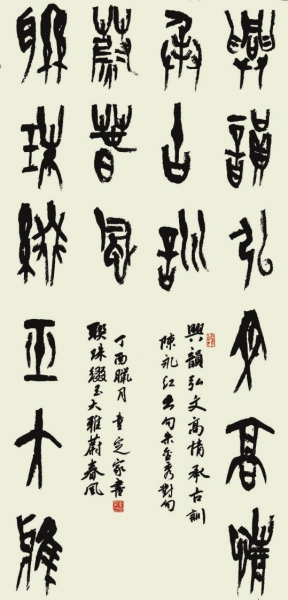 興韻弘文高情
承古訓
興韻弘文高情承古訓
出句對句
聯珠綴玉大雅
蔚春風
聯珠綴玉大雅蔚春風
丁酉臘月童定家書